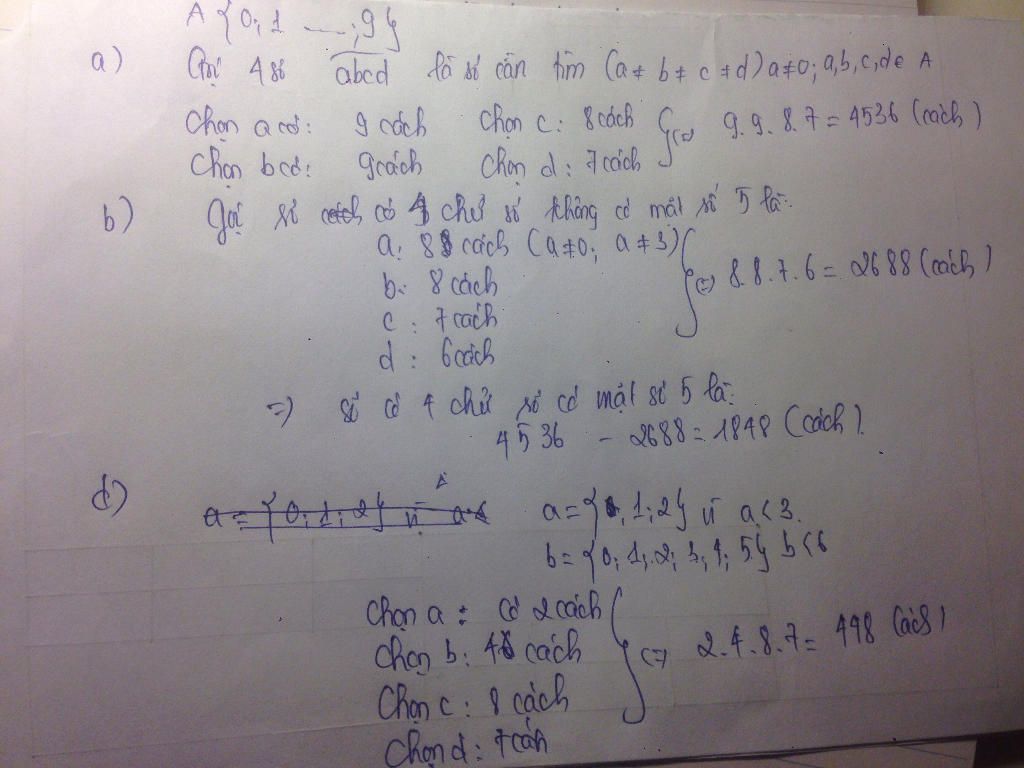 A {0; 1 ...; 9}
a) Gọi 4 số abcd là số cần tìm (a ≠ b ≠ c ≠ d) a≠0; a,b,c,d ∈ A
Chọn a có: 9 cách Chọn c: 8 cách
Chọn b có: 9 cách Chọn d: 7 cách
⇔ 9.9.8.7 = 4536 (cách)
b) Gọi số có 4 chữ số không có mặt số 5 là:
a: 8 cách (a≠0; a≠3)
b: 8 cách
c: 7 cách
d: 6 cách
⇔ 8.8.7.6 = 2688 (cách)
=) số có 4 chữ số có mặt số 5 là:
4536 - 2688 = 1848 (cách).
d) a = {0; 1; 2} vì a<
a = {, 1; 2} vì a < 3.
b = {0; 1; 2; 3; 4; 5} b < 6
Chọn a: có 2 cách
Chọn b: 4 cách
Chọn c: 8 cách
Chọn d: 7 cách
⇔ 2.4.8.7 = 448 (cách)